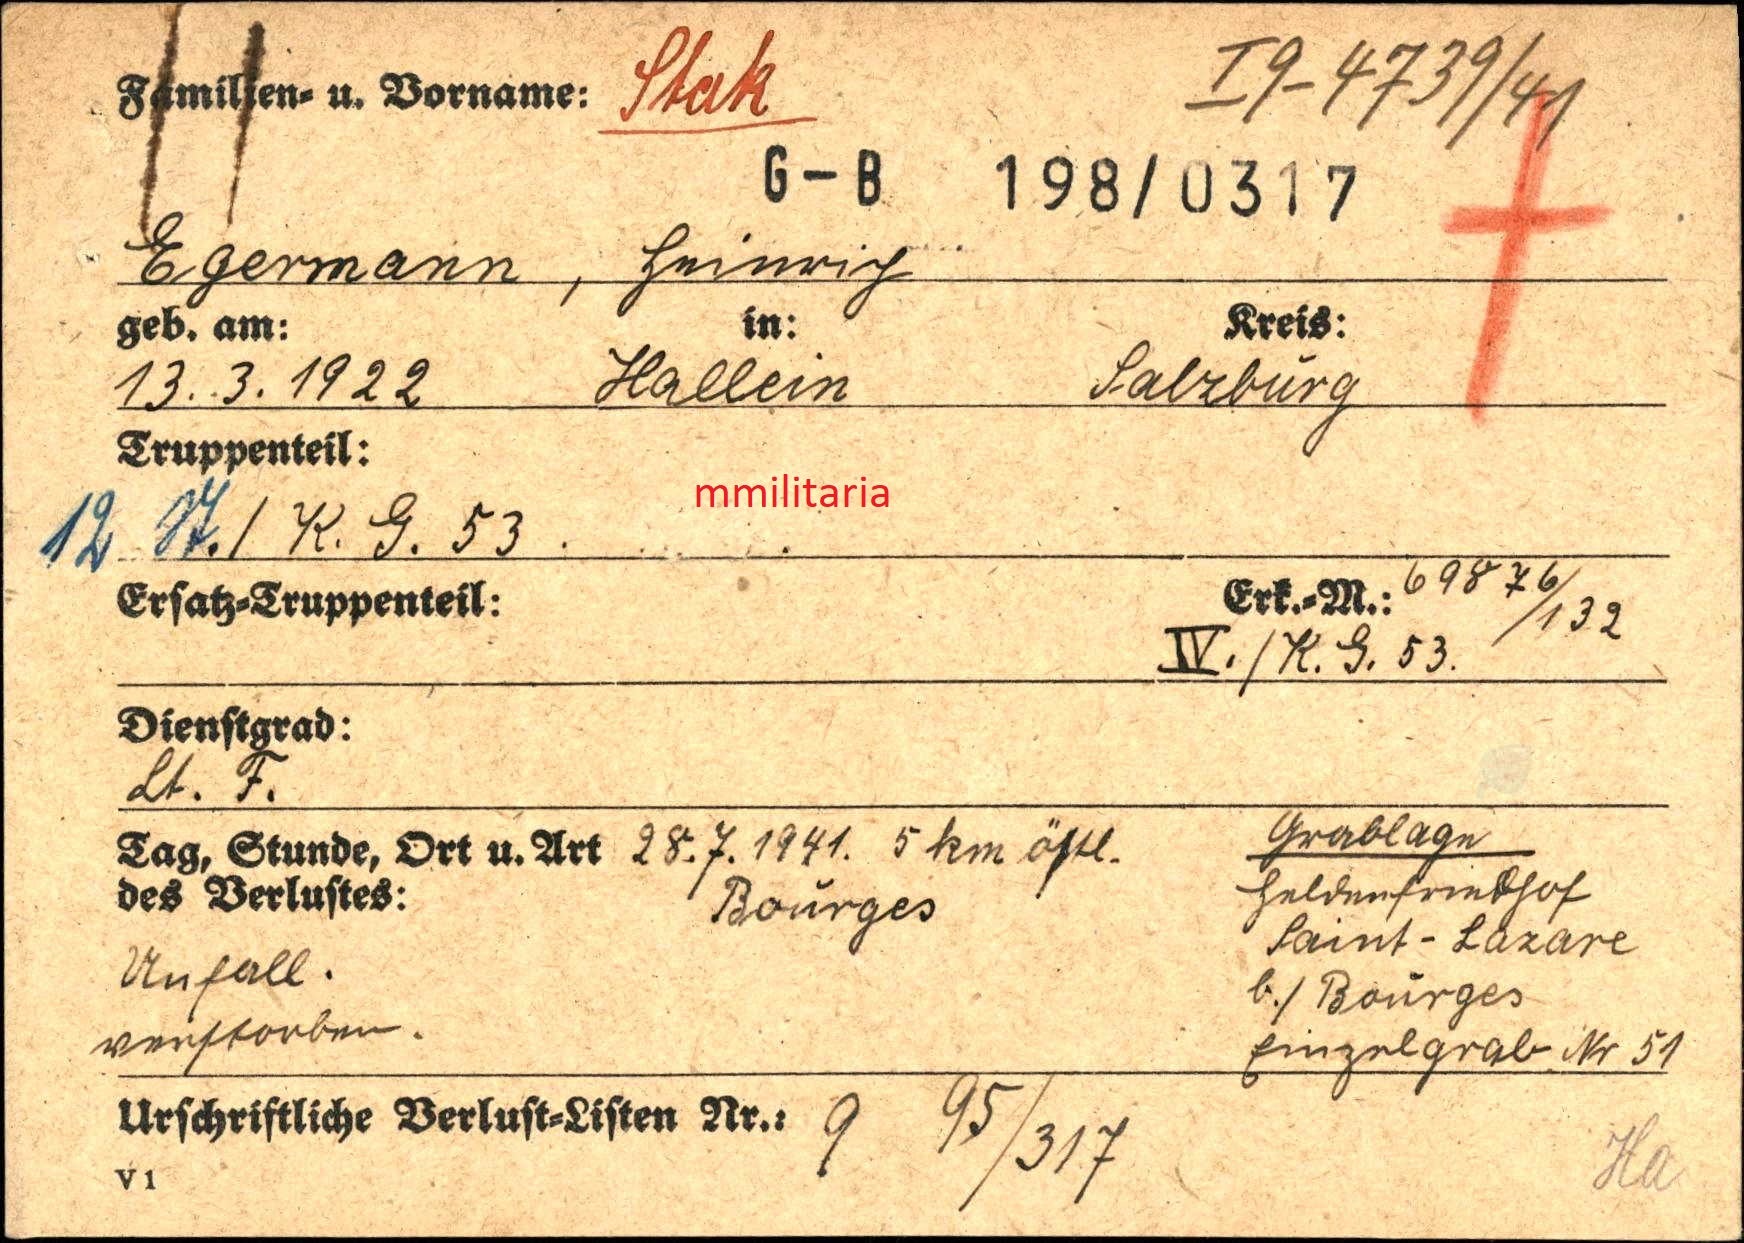 Familien- u. Vorname: Stak
I9-4739/41
G-B 198/0317
Egermann, Heinrich
geb. am: in: Kreis:
13.3.1922 Hallein Salzburg
Truppenteil:
mmilitaria
12 ./K.G. 53.
Ersatz-Truppenteil: Erk.-M.: 69876/132
IV./K.G. 53.
Dienstgrad:
Lt. F.
Tag, Stunde, Ort u. Art 28.7.1941. 5 km östl.
des Verlustes: Bourges
Unfall.
verstorben.
Grablage
Heldenfriedhof
Saint-Lazare
b./Bourges
Einzelgrab Nr 51
Urschriftliche Verlust-Listen Nr.: 9 95/317
V 1
Ha